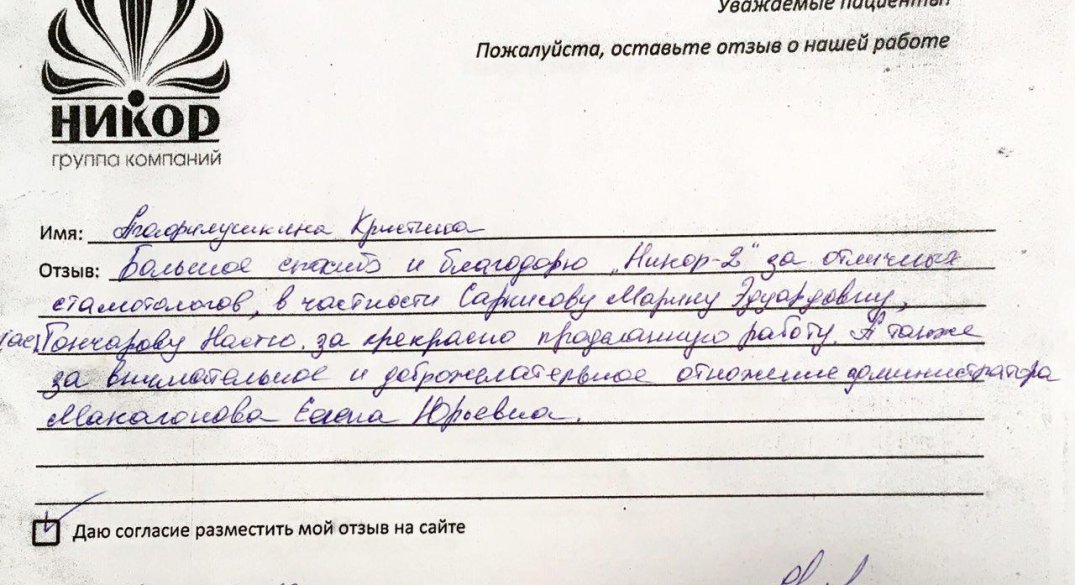 Уважаемые пациенты!
Пожалуйста, оставьте отзыв о нашей работе
НИКОР
группа компаний
Имя: Кристина
Отзыв: Большое спасибо и благодорю „Никор-2" за отличных
стамотологов, в частности Саркисову Марину Эдуардовну,
Гончарову Настю, за прекрасно проделанную работу. А также
за внимательное и доброжелательное отношение администратора
Макагонова Елена Юрьевна.
Даю согласие разместить мой отзыв на сайте